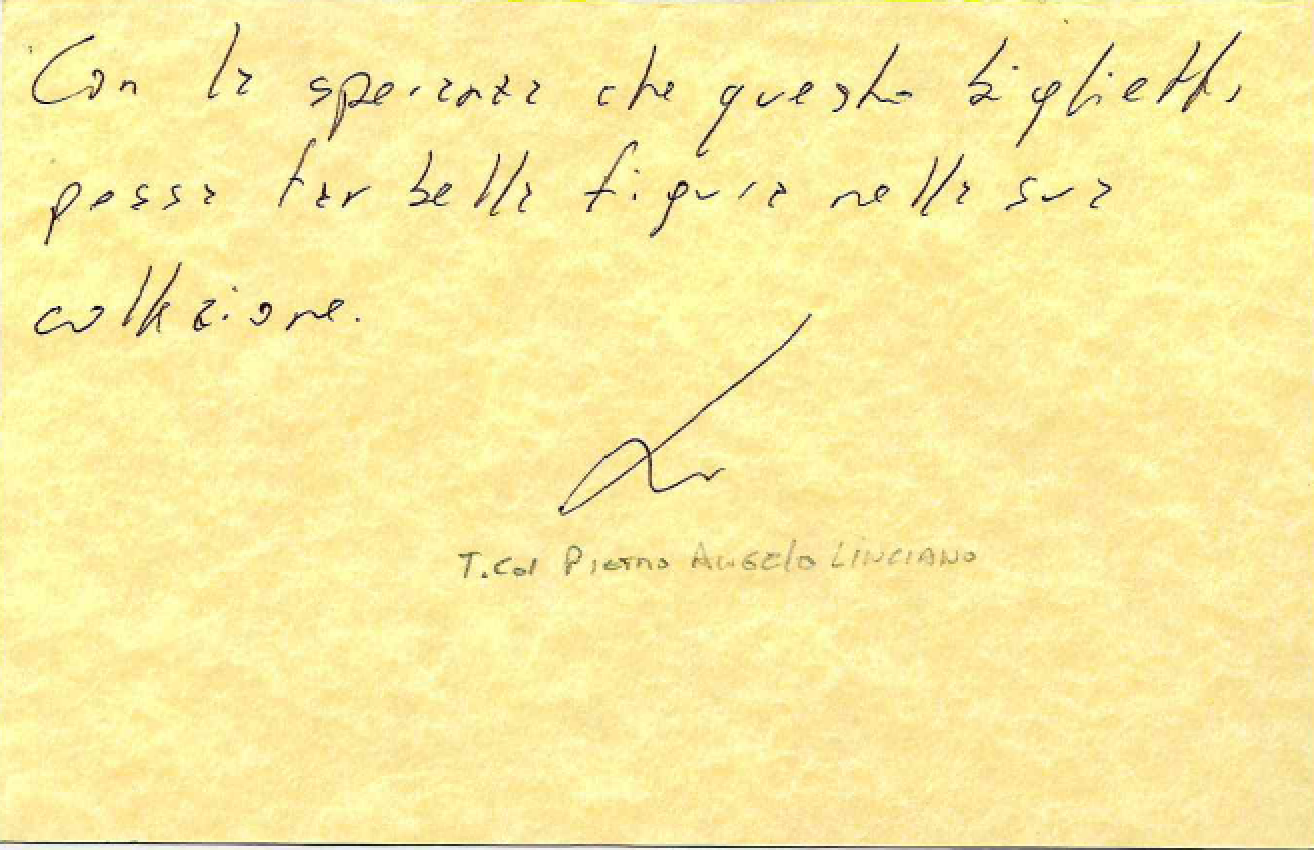 Con la speranza che questo biglietto
possa far bella figura nella sua
collezione.
T.Col Pietro Angelo LINCIANO